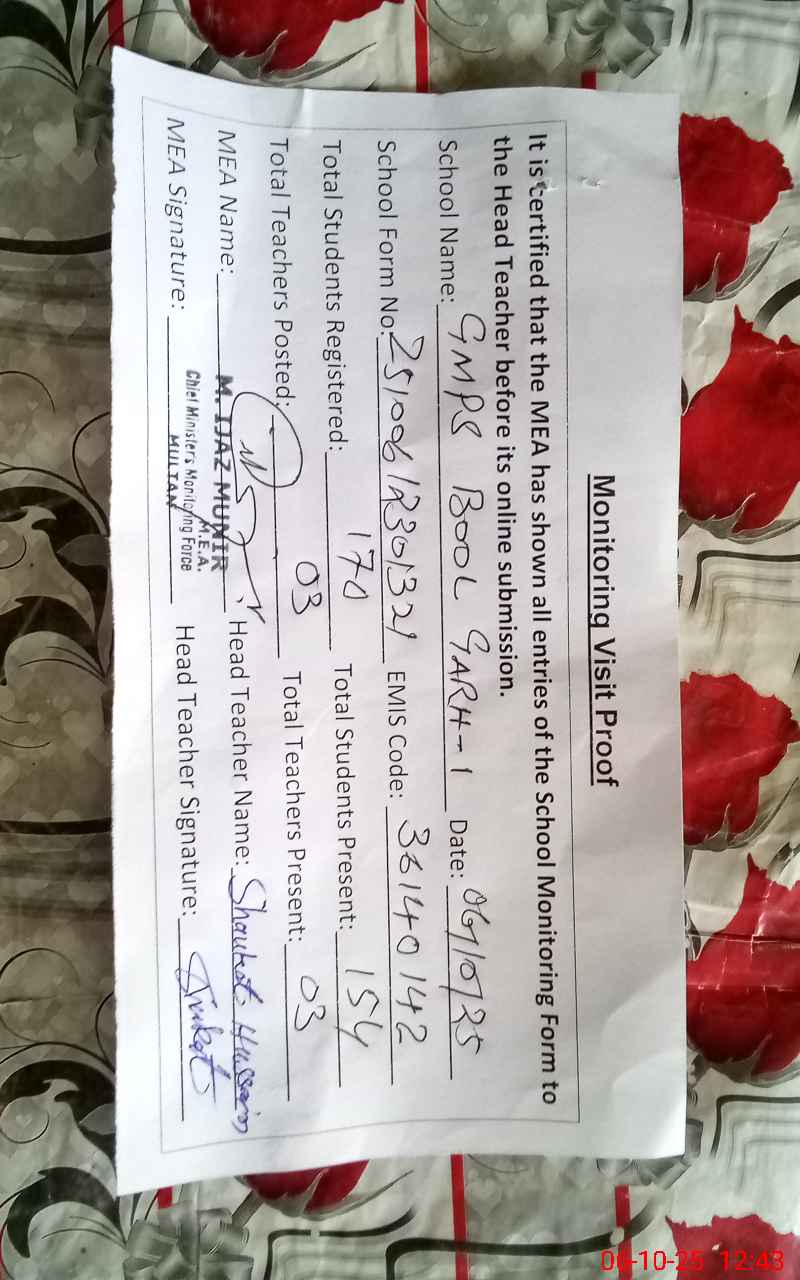 Monitoring Visit Proof
It is certified that the MEA has shown all entries of the School Monitoring Form to
the Head Teacher before its online submission.
School Name: GMPS BOOL GARH-1 Date: 06/10/25
School Form No: 251006123013321 EMIS Code: 36140142
Total Students Registered: 170 Total Students Present: 154
Total Teachers Posted: 03 Total Teachers Present: 03
MEA Name: M. IJAZ MUNIR Head Teacher Name: Shaukat Hussain
M.E.A.
Chief Ministers Monitoring Force
MULTAN
MEA Signature: Head Teacher Signature:
06-10-25 12:43